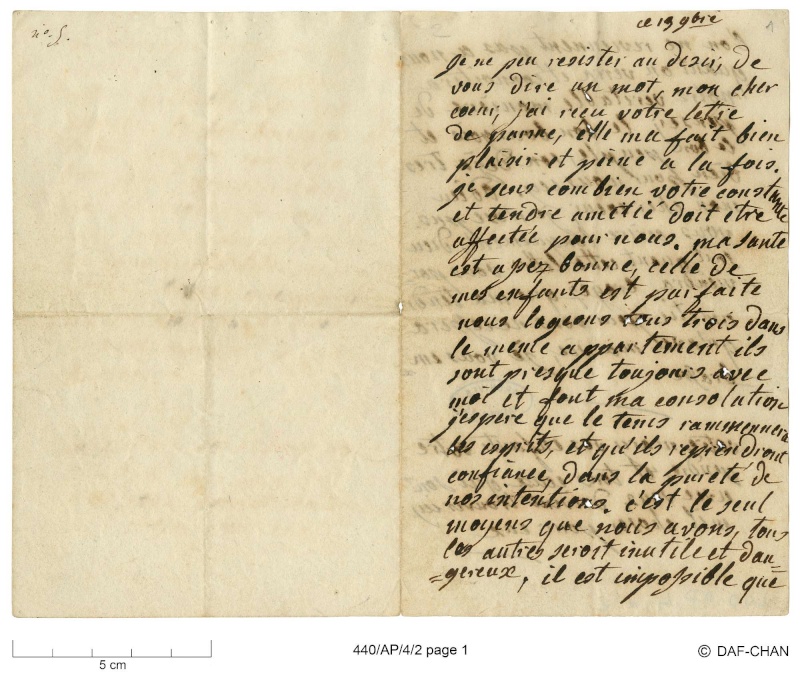 n°. 5.
ce 19 9bre
1
je ne peu resister au desir, de
vous dire un mot, mon cher
coeur, j'ai recu votre lettre
de parme, elle ma fait bien
plaisir et peine a la fois.
je sens combien votre constante
et tendre amitié doit etre
affectée pour nous. ma santé
est assez bonne, celle de
mes enfants est parfaite
nous logeons tous trois dans
le meme appartement ils
sont presque toujours avec
moi et font ma consolation
j'espere que le tems rammennera
les esprits, et qu'ils reprendront
confiance, dans la pureté de
nos intentions. c'est le seul
moyens que nous avons, tous
les autres seroit inutile et dan=
=gereux, il est impossible que
5 cm
440/AP/4/2 page 1
© DAF-CHAN